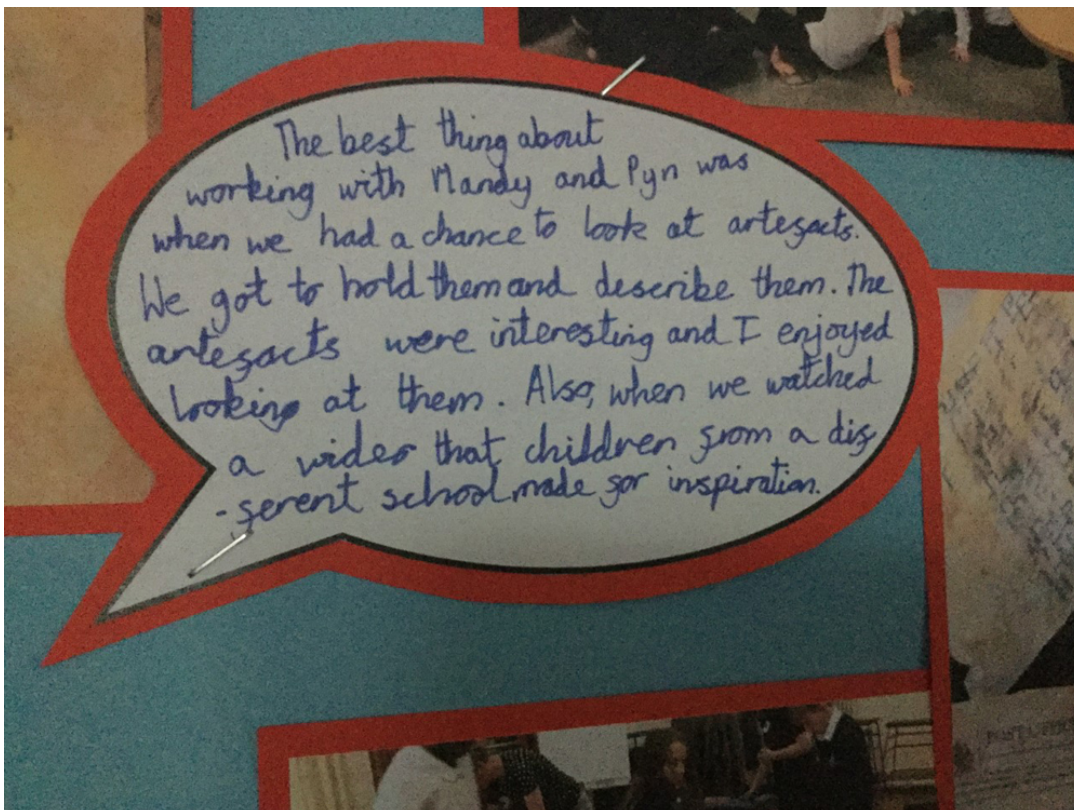 The best thing about
working with Mandy and Pyn was
when we had a chance to look at artefacts.
We got to hold them and describe them. The
artefacts were interesting and I enjoyed
looking at them. Also, when we watched
a wider that children from a dif
-ferent school made for inspiration.